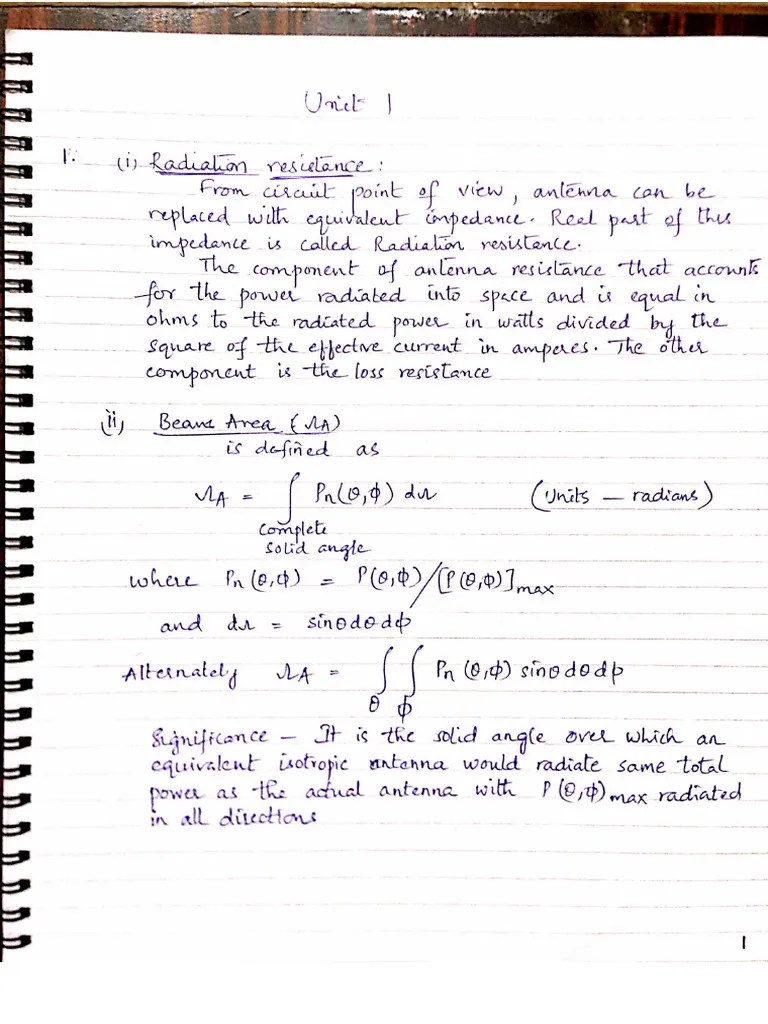 Unit 1
1. (i) Radiation resistance:
From circuit point of view, antenna can be
replaced with equivalent impedance. Real part of this
impedance is called Radiation resistance.
The component of antenna resistance that accounts
for the power radiated into space and is equal in
ohms to the radiated power in watts divided by the
square of the effective current in amperes. The other
component is the loss resistance
(ii) Beam Area (ΩA)
is defined as
ΩA = ∫ Pn(θ,φ) dΩ (Units – radians)
complete
solid angle
where Pn(θ,φ) = P(θ,φ)/[P(θ,φ)]max
and dΩ = sinθdθdφ
Alternately ΩA = ∫ ∫ Pn(θ,φ) sinθdθdφ
θ φ
Significance – It is the solid angle over which an
equivalent isotropic antenna would radiate same total
power as the actual antenna with P(θ,φ)max radiated
in all directions
1